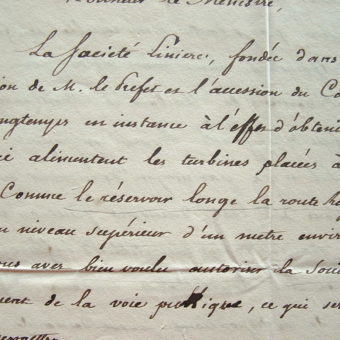 Monsieur le Ministre,
La Société Linière, fondée dans
ion de M. le Préfet et l'accession du Co
ngtemps en instance à l'effet d'obteni
alimentant les turbines placées à
Comme le réservoir longe la route
niveau supérieur d'un metre envir
ous avez bien voulu autoriser la Soci
ent de la voie publique, ce qui ser